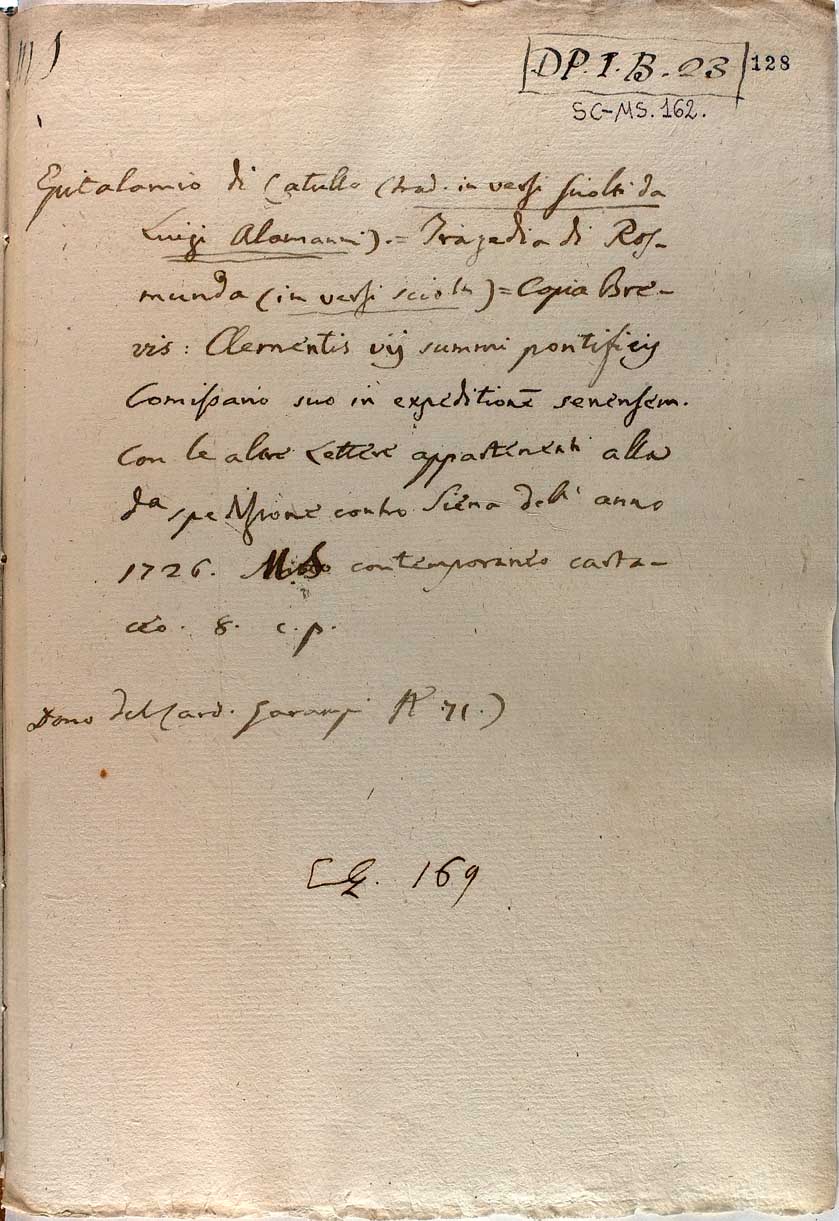 DP. I. B. 23 128
SC-MS. 162.
Epitalamio di Catullo (trad. in versi sciolti da
Luigi Alamanni). = Tragedia di Ros-
munda (in versi sciolti) = Copia Bre-
vis: Clementis vij summi pontificis
Comissario suo in expeditionē senensem.
Con le altre Lettere appartenenti alla
da spedizione contro Siena dell' anno
1726. MS contemporaneo carta-
ceo. 8. c. p.
Dono del Card. Garampi N 71.)
169